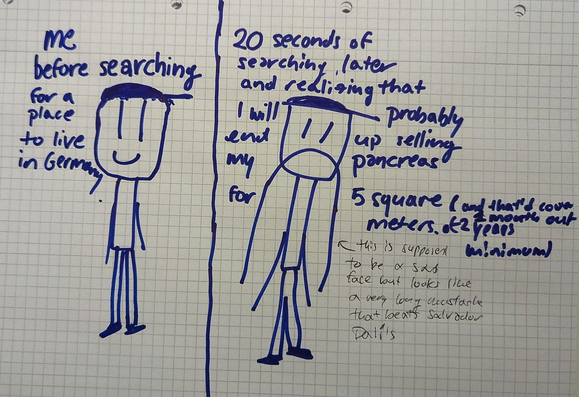 me
before searching
for a
place
to live
in Germany
20 seconds of
searching later
and realizing that
I will probably
end up selling
my pancreas
for 5 square (and that'd cover
meters. 1 month out
of 2 years
minimum)
← this is supposed
to be a sad
face but looks like
a very long mustache
that beats Salvador
Dalí's